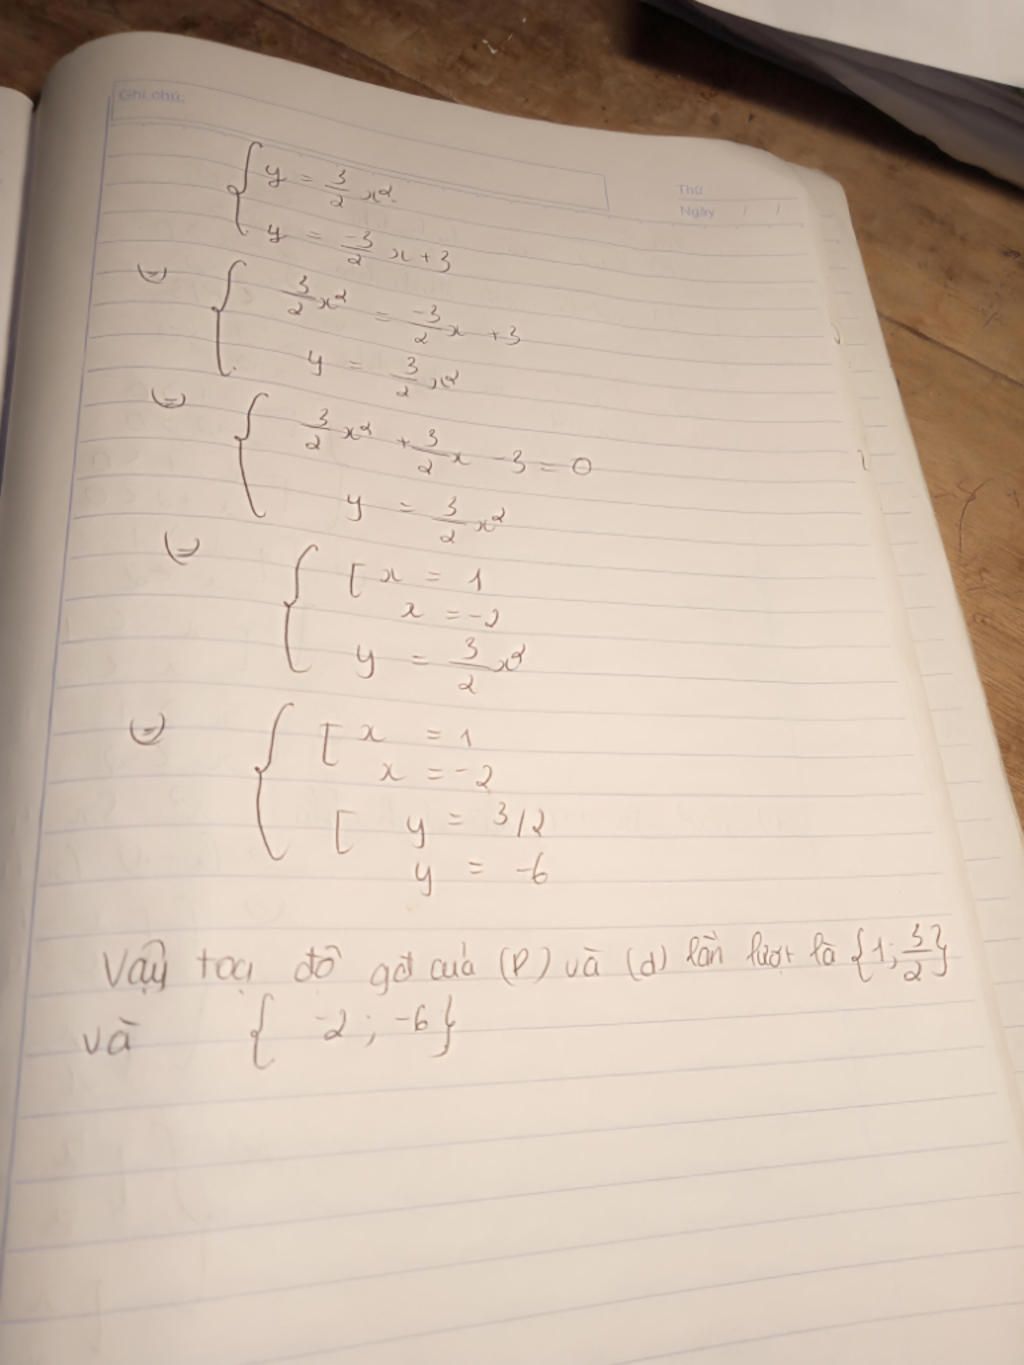 Ghi chú:
Thứ
Ngày / /
{ y = 3/2 x²
y = -3/2 x + 3
(=) { 3/2 x² = -3/2 x + 3
y = 3/2 x²
(=) { 3/2 x² + 3/2 x - 3 = 0
y = 3/2 x²
(=) { [ x = 1
x = -2
y = 3/2 x²
(=) { [ x = 1
x = -2
[ y = 3/2
y = -6
Vậy toạ độ gđ của (P) và (d) lần lượt là {1; 3/2}
và { -2 ; -6}